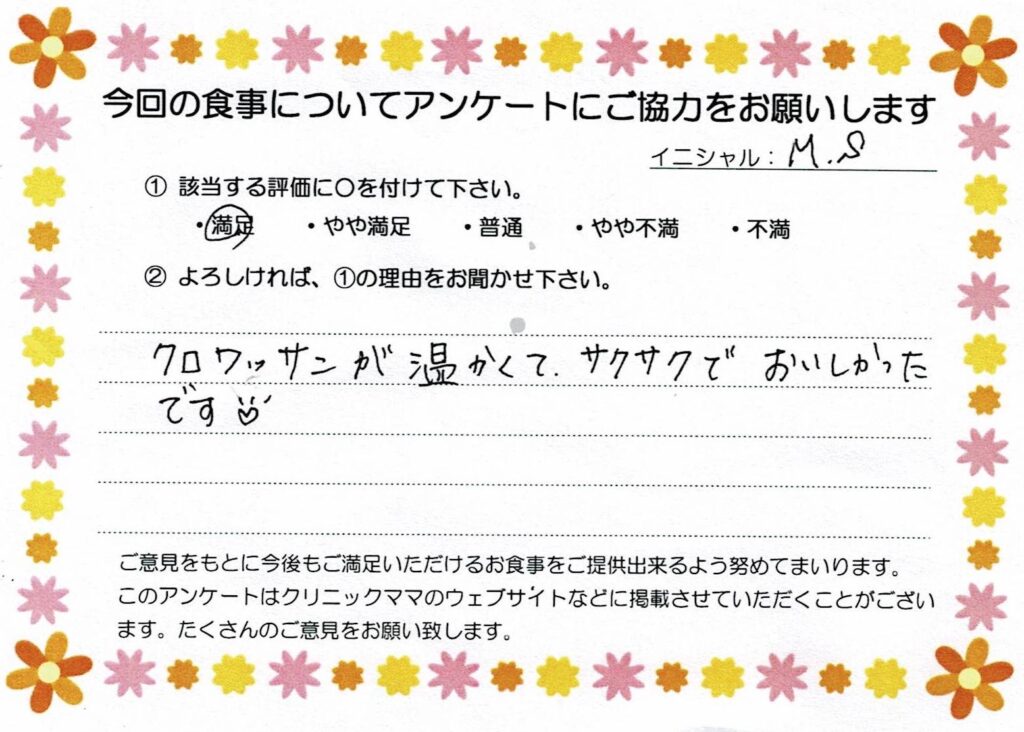 今回の食事についてアンケートにご協力をお願いします
イニシャル：M.S
① 該当する評価に〇を付けて下さい。
・満足 ・やや満足 ・普通 ・やや不満 ・不満
② よろしければ、①の理由をお聞かせ下さい。
クロワッサンが温かくて.サクサクでおいしかった
です
ご意見をもとに今後もご満足いただけるお食事をご提供出来るよう努めてまいります。
このアンケートはクリニックママのウェブサイトなどに掲載させていただくことがござい
ます。たくさんのご意見をお願い致します。